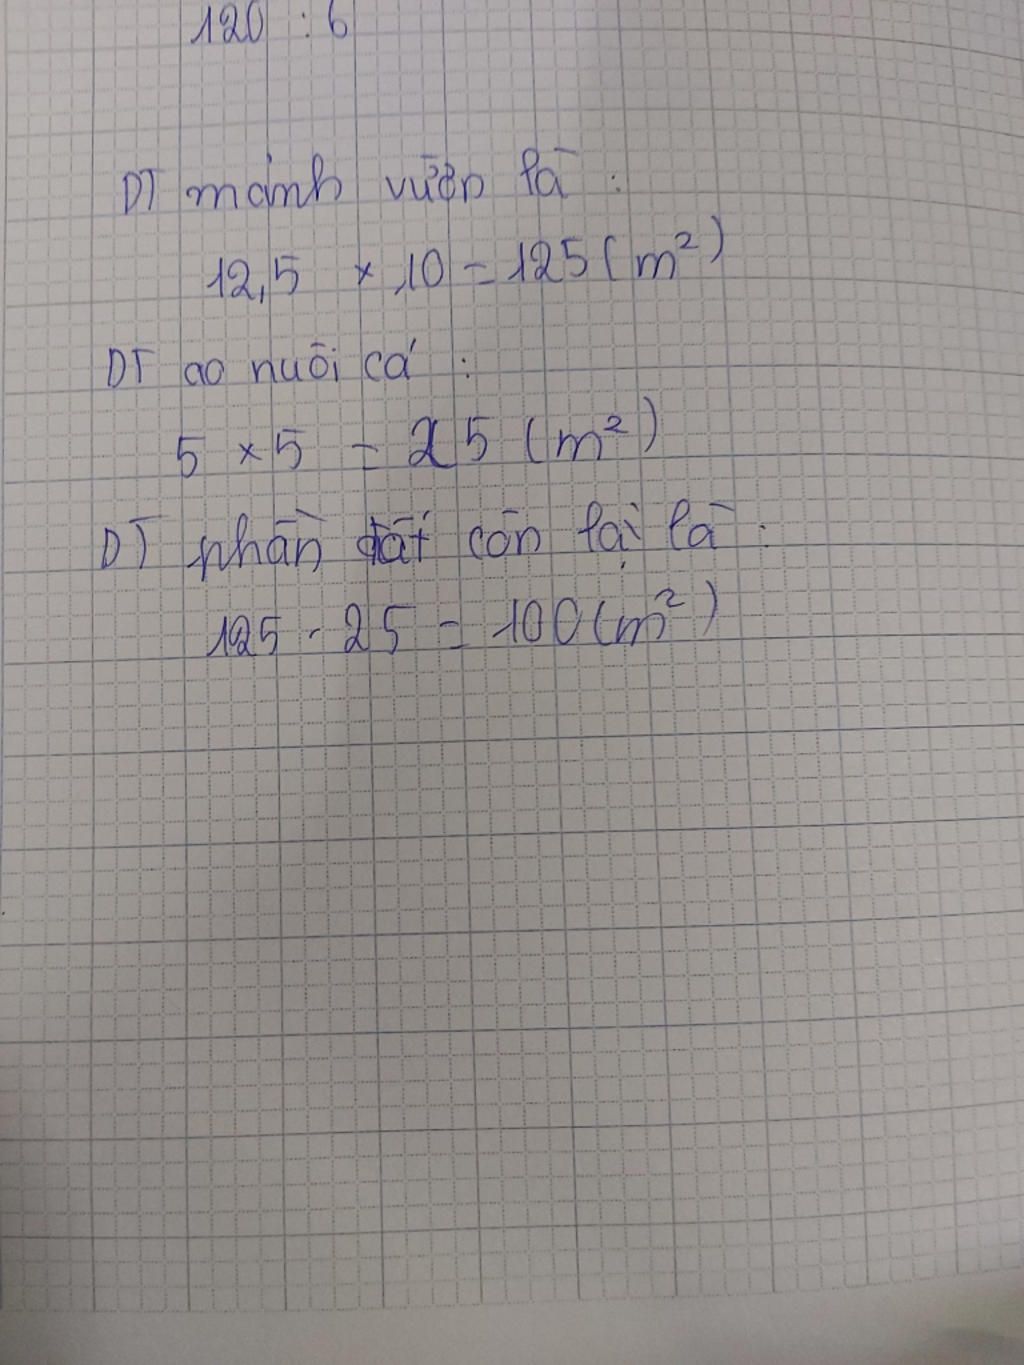 120 : 6
DT mảnh vườn là :
12,5 × 10 = 125 (m²)
DT ao nuôi cá :
5 × 5 = 25 (m²)
DT phần đất còn lại là :
125 - 25 = 100 (m²)